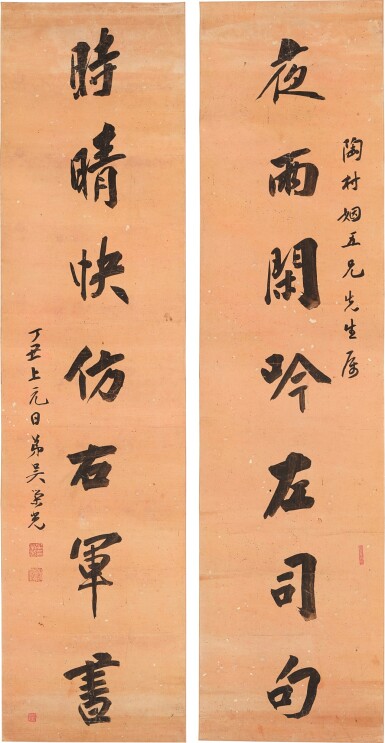 陶村姻五兄先生属
夜雨閑吟左司句
時晴快仿右軍書
丁丑上元日弟吳榮光